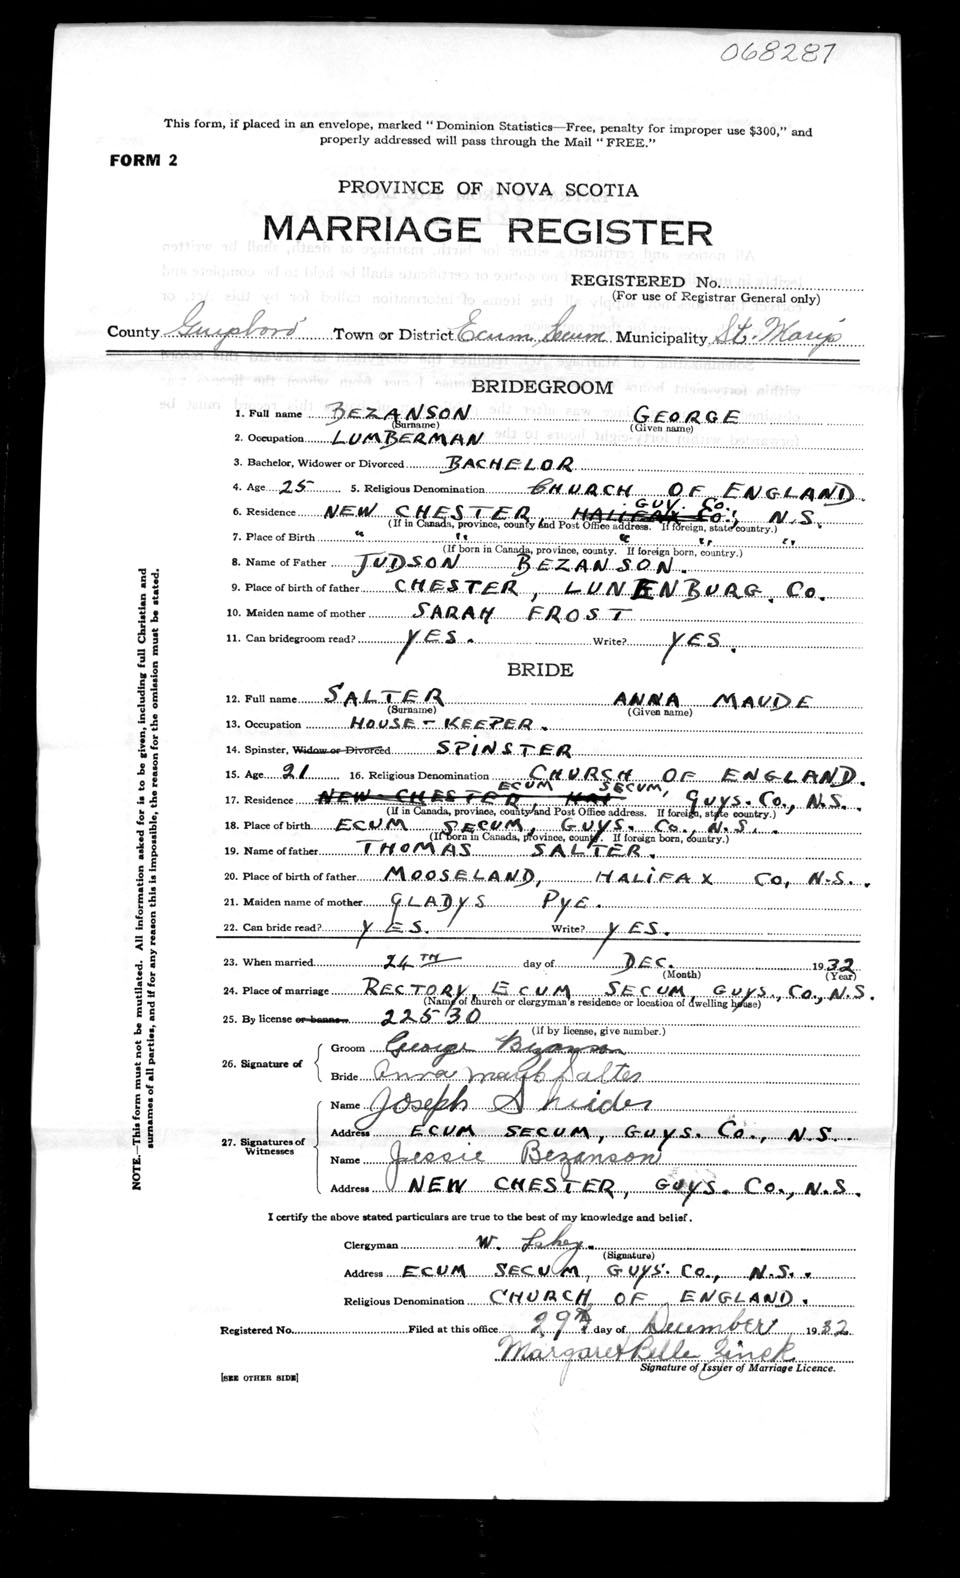 068287
This form, if placed in an envelope, marked "Dominion Statistics—Free, penalty for improper use $300," and
properly addressed will pass through the Mail "FREE."
FORM 2
PROVINCE OF NOVA SCOTIA
MARRIAGE REGISTER
REGISTERED No.
(For use of Registrar General only)
County Guysboro Town or District Ecum Secum Municipality St. Mary's
BRIDEGROOM
1. Full name BEZANSON GEORGE
(Surname) (Given name)
2. Occupation LUMBERMAN
3. Bachelor, Widower or Divorced BACHELOR
4. Age 25 5. Religious Denomination CHURCH OF ENGLAND.
GUY. CO.
6. Residence NEW CHESTER, HALIFAX CO., N.S.
(If in Canada, province, county and Post Office address. If foreign, state country.)
7. Place of Birth " " " " "
(If born in Canada, province, county. If foreign born, country.)
8. Name of Father JUDSON BEZANSON.
9. Place of birth of father CHESTER, LUNENBURG. CO.
10. Maiden name of mother SARAH FROST
11. Can bridegroom read? YES. Write? YES.
BRIDE
12. Full name SALTER ANNA MAUDE
(Surname) (Given name)
13. Occupation HOUSE-KEEPER.
14. Spinster, Widow or Divorced SPINSTER
15. Age 21 16. Religious Denomination CHURCH OF ENGLAND.
ECUM SECUM,
17. Residence NEW CHESTER, HAL GUYS. CO., N.S.
(If in Canada, province, county and Post Office address. If foreign, state country.)
18. Place of birth ECUM SECUM, GUYS. CO., N.S.
(If born in Canada, province, county. If foreign born, country.)
19. Name of father THOMAS SALTER.
20. Place of birth of father MOOSELAND, HALIFAX CO, N.S.
21. Maiden name of mother GLADYS PYE.
22. Can bride read? YES. Write? YES.
23. When married 24TH day of DEC. 1932
(Month) (Year)
24. Place of marriage RECTORY, ECUM SECUM, GUYS., CO., N.S.
(Name of church or clergyman's residence or location of dwelling house)
25. By license or banns 22530
(if by license, give number.)
26. Signature of
Groom George Bezanson
Bride Anna Maud Salter
27. Signatures of Witnesses
Name Joseph Snider
Address ECUM SECUM, GUYS. CO., N.S.
Name Jessie Bezanson
Address NEW CHESTER, GUYS. CO., N.S.
I certify the above stated particulars are true to the best of my knowledge and belief.
Clergyman W.
(Signature)
Address ECUM SECUM, GUYS. CO., N.S.
Religious Denomination CHURCH OF ENGLAND.
Registered No. Filed at this office 29th day of December 1932
Margaret Belle Zinck
Signature of Issuer of Marriage Licence.
[SEE OTHER SIDE]
NOTE.—This form must not be mutilated. All information asked for is to be given, including full Christian and
surnames of all parties, and if for any reason this is impossible, the reason for the omission must be stated.